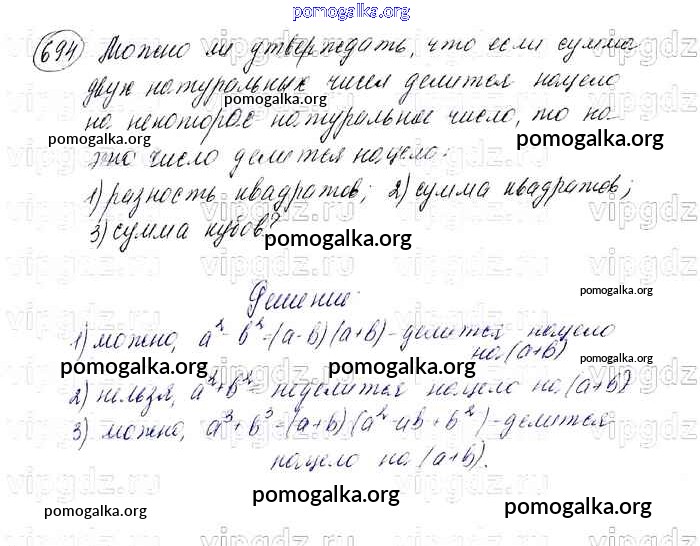 pomogalka.org
694 Можно ли утверждать, что если сумма
двух натуральных чисел делится нацело
pomogalka.org
на некоторое натуральное число, то на
pomogalka.org pomogalka.org
это число делится нацело:
1) разность квадратов; 2) сумма квадратов;
3) сумма кубов?
pomogalka.org
Решение:
pomogalka.org
1) можно, a² - b² = (a-b)(a+b) - делится нацело
на (a+b)
pomogalka.org pomogalka.org pomogalka.org
2) нельзя, a² + b² - не делится нацело на (a+b)
3) можно, a³ + b³ = (a+b)(a² - ab + b²) - делится
нацело на (a+b).
pomogalka.org
pomogalka.org pomogalka.org